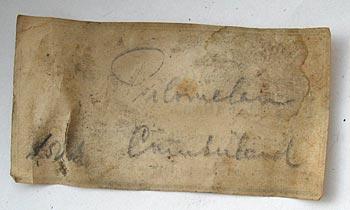 Psilomelane
Cumberland